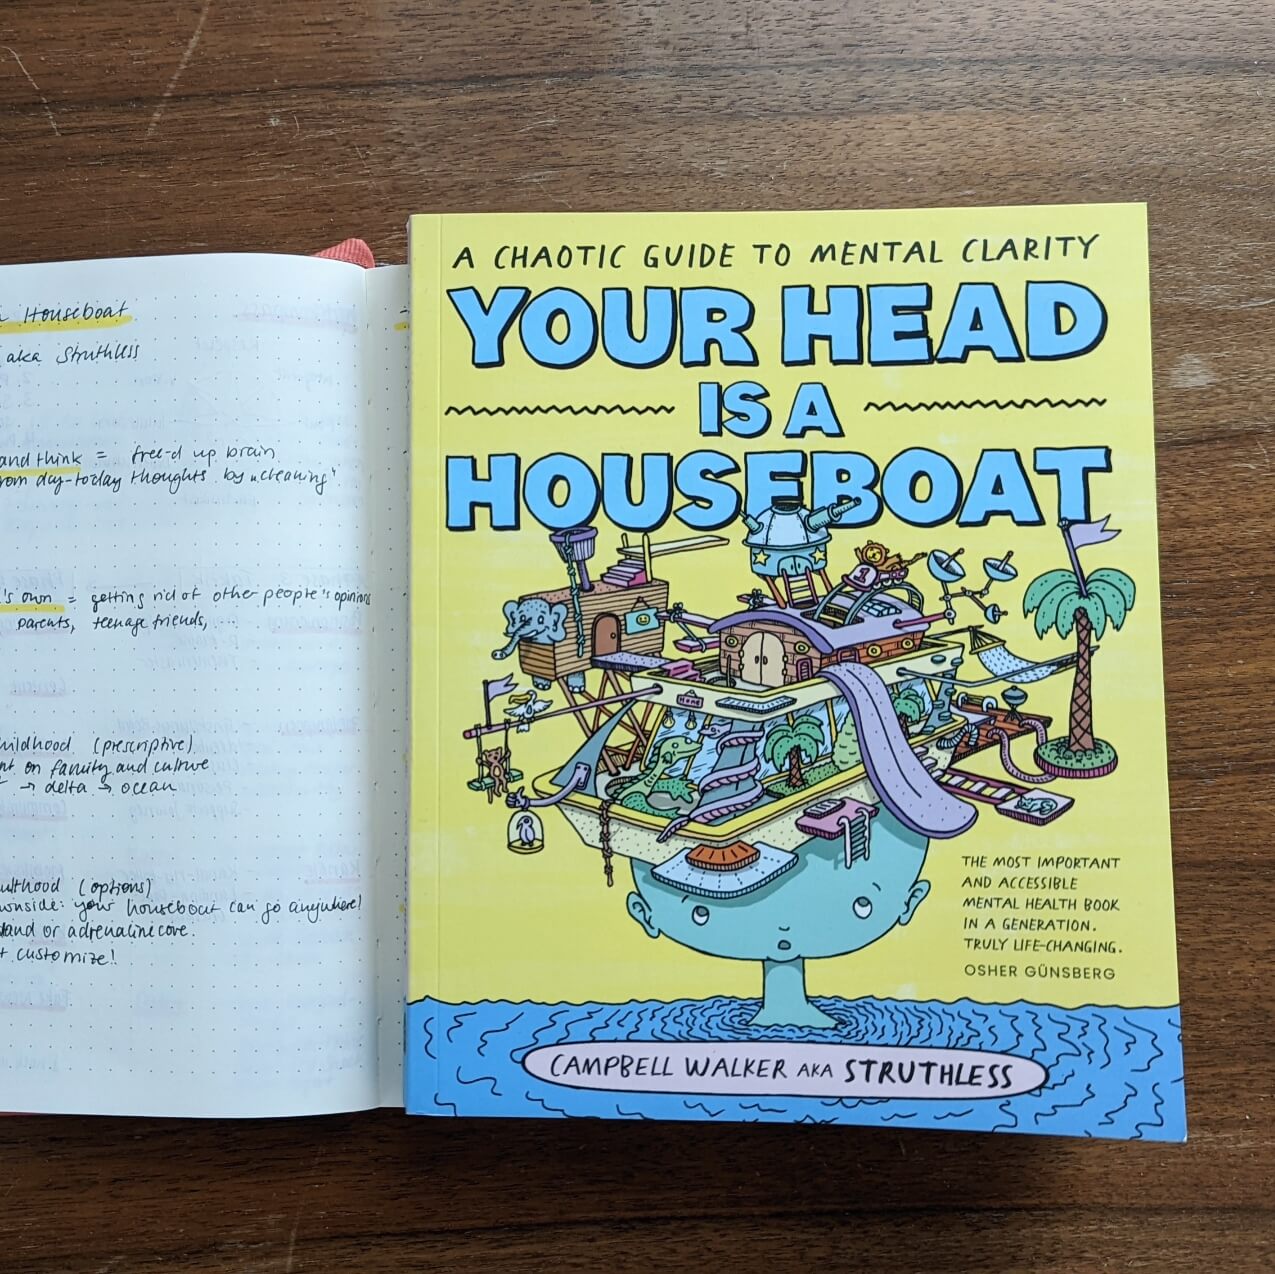 Houseboat
aka Struthless
and think = free-d up brain
from day-to-day thoughts by „cleaning"
's own = getting rid of other people's opinions
parents, teenage friends,
childhood (prescriptive)
on family and culture
→ delta → ocean
(options)
your houseboat can go anywhere!
or adrenaline cove.
customize!
A CHAOTIC GUIDE TO MENTAL CLARITY
YOUR HEAD
IS A
HOUSEBOAT
1
HOME
THE MOST IMPORTANT
AND ACCESSIBLE
MENTAL HEALTH BOOK
IN A GENERATION.
TRULY LIFE-CHANGING.
OSHER GÜNSBERG
CAMPBELL WALKER AKA STRUTHLESS